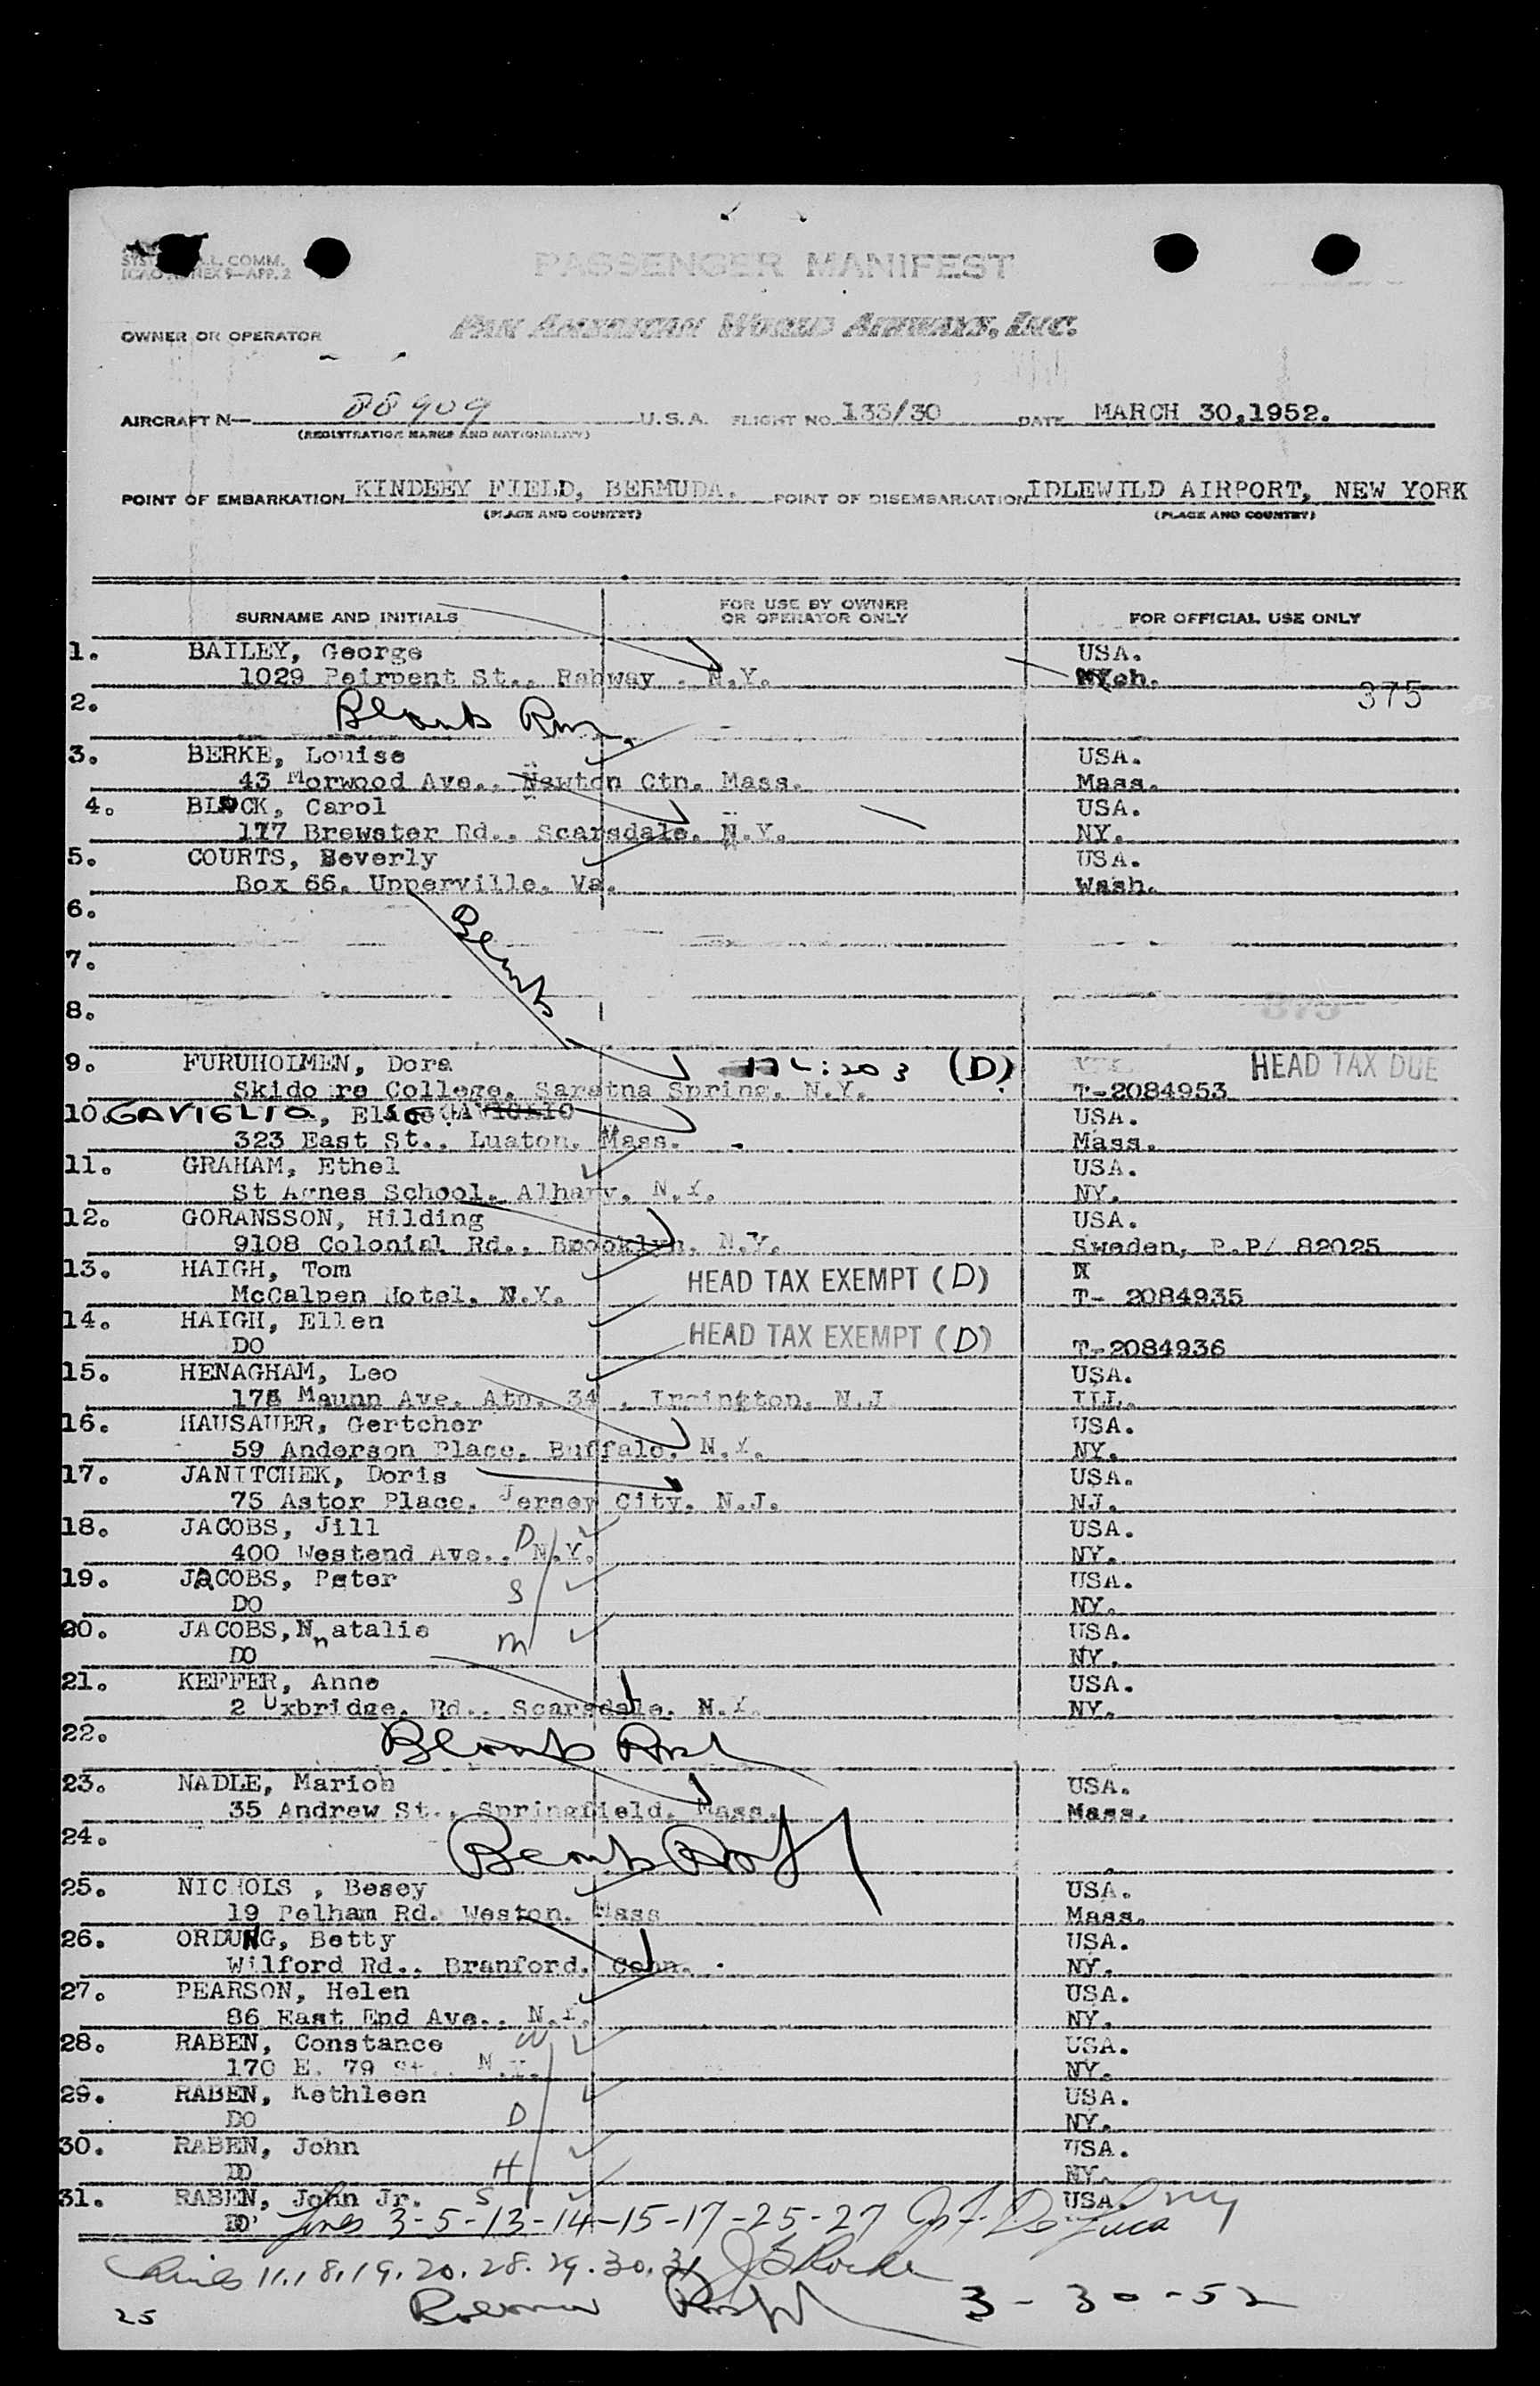 A.L. COMM.
ICAO ANNEX 9—APP. 2
PASSENGER MANIFEST
OWNER OR OPERATOR PAN AMERICAN WORLD AIRWAYS, INC.
AIRCRAFT N— 88909 U.S.A. FLIGHT NO. 133/30 DATE MARCH 30,1952.
(REGISTRATION MARKS AND NATIONALITY)
POINT OF EMBARKATION KINDEEY FIELD, BERMUDA. POINT OF DISEMBARKATION IDLEWILD AIRPORT, NEW YORK
(PLACE AND COUNTRY) (PLACE AND COUNTRY)
SURNAME AND INITIALS FOR USE BY OWNER OR OPERATOR ONLY FOR OFFICIAL USE ONLY
1. BAILEY, George USA.
1029 Peirpent St., Rahway . N.Y.
375
2. Blank
3. BERKE, Louise USA.
43 Morwood Ave., Newton Ctn. Mass. Mass.
4. BLOCK, Carol USA.
117 Brewster Rd., Scarsdale, N.Y. NY.
5. COURTS, Beverly USA.
Box 66, Upperville, Va. Wash.
6.
Blank
7.
8.
9. FURUHOLMEN, Dora (D) HEAD TAX DUE
Skidore College, Saratna Spring, N.Y. T-2084953
10. GAVIGLIO, USA.
323 East St., Luaton, Mass. Mass.
11. GRAHAM, Ethel USA.
St Agnes School, Albany, N.Y. NY.
12. GORANSSON, Hilding USA.
9108 Colonial Rd., Brooklyn, N.Y. Sweden, P.P/ 82025
13. HAIGH, Tom HEAD TAX EXEMPT (D)
McCalpen Hotel, N.Y. T- 2084935
14. HAIGH, Ellen HEAD TAX EXEMPT (D)
DO T-2084936
15. HENAGHAM, Leo USA.
175 Maunn Ave. Atp. 34 , Irington, N.J ILL.
16. HAUSAUER, Gertcher USA.
59 Anderson Place, Buffalo, N.Y. NY.
17. JANITCHEK, Doris USA.
75 Astor Place, Jersey City, N.J. NJ.
18. JACOBS, Jill D USA.
400 Westend Ave., N.Y. NY.
19. JACOBS, Peter S USA.
DO NY.
20. JACOBS, Nnatalie m USA.
DO NY.
21. KEFFER, Anne USA.
2 Uxbridge, Rd., Scarsdale, N.Y. NY.
22. Blank
23. NADLE, Marion USA.
35 Andrew St., Springfield, Mass. Mass.
24. Blank
25. NICHOLS , Besey USA.
19 Pelham Rd. Weston, Mass Mass.
26. ORDUNG, Betty USA.
Wilford Rd., Branford, Conn. NY.
27. PEARSON, Helen USA.
86 East End Ave., N.Y. NY.
28. RABEN, Constance W USA.
170 E. 79 St., N.Y. NY.
29. RABEN, Kathleen USA.
DO D NY.
30. RABEN, John USA.
DO H NY.
31. RABEN, John Jr. S USA. NY
DO Lines 3-5-13-14-15-17-25-27 De Luca
Lines 11.18.19.20.28.29.30.31
25 3-30-52